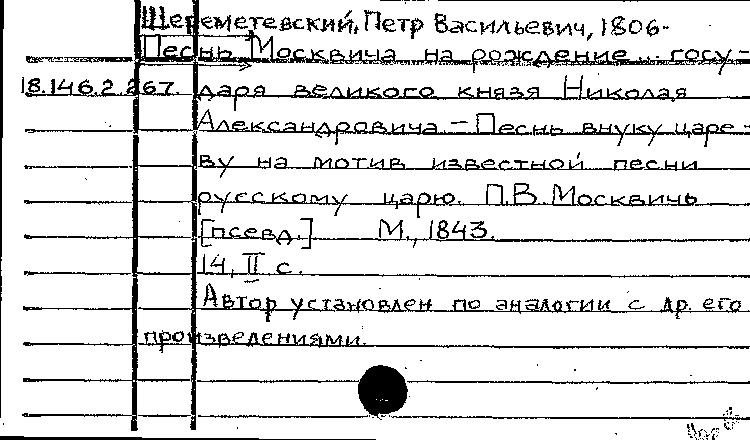 Шереметевский, Петр Васильевич, 1806-
Песнь Москвича на рождение... госу-
18.146.2.267. даря великого князя Николая
Александровича. - Песнь внуку царе-
ву на мотив известной песни
русскому царю. П.В. Москвичь
[псевд.] М., 1843.
14, II с.
Автор установлен по аналогии с др. его
произведениями.